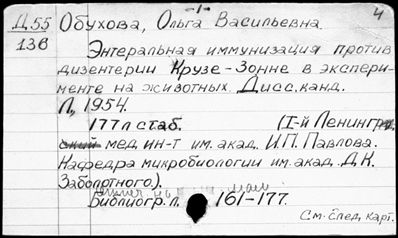 -1-
4
Д55 Обухова, Ольга Васильевна.
136
Энтеральная иммунизация против
дизентерии Крузе-Зонне в экспери-
менте на животных Дисс. канд.
Л, 1954.
177л стаб. (I-й Ленингр.
мед. ин-т им. акад. И.П. Павлова.
Кафедра микробиологии им. акад. Д.К.
Заболотного).
Библиогр. л. 161-177.
См. след. карт.